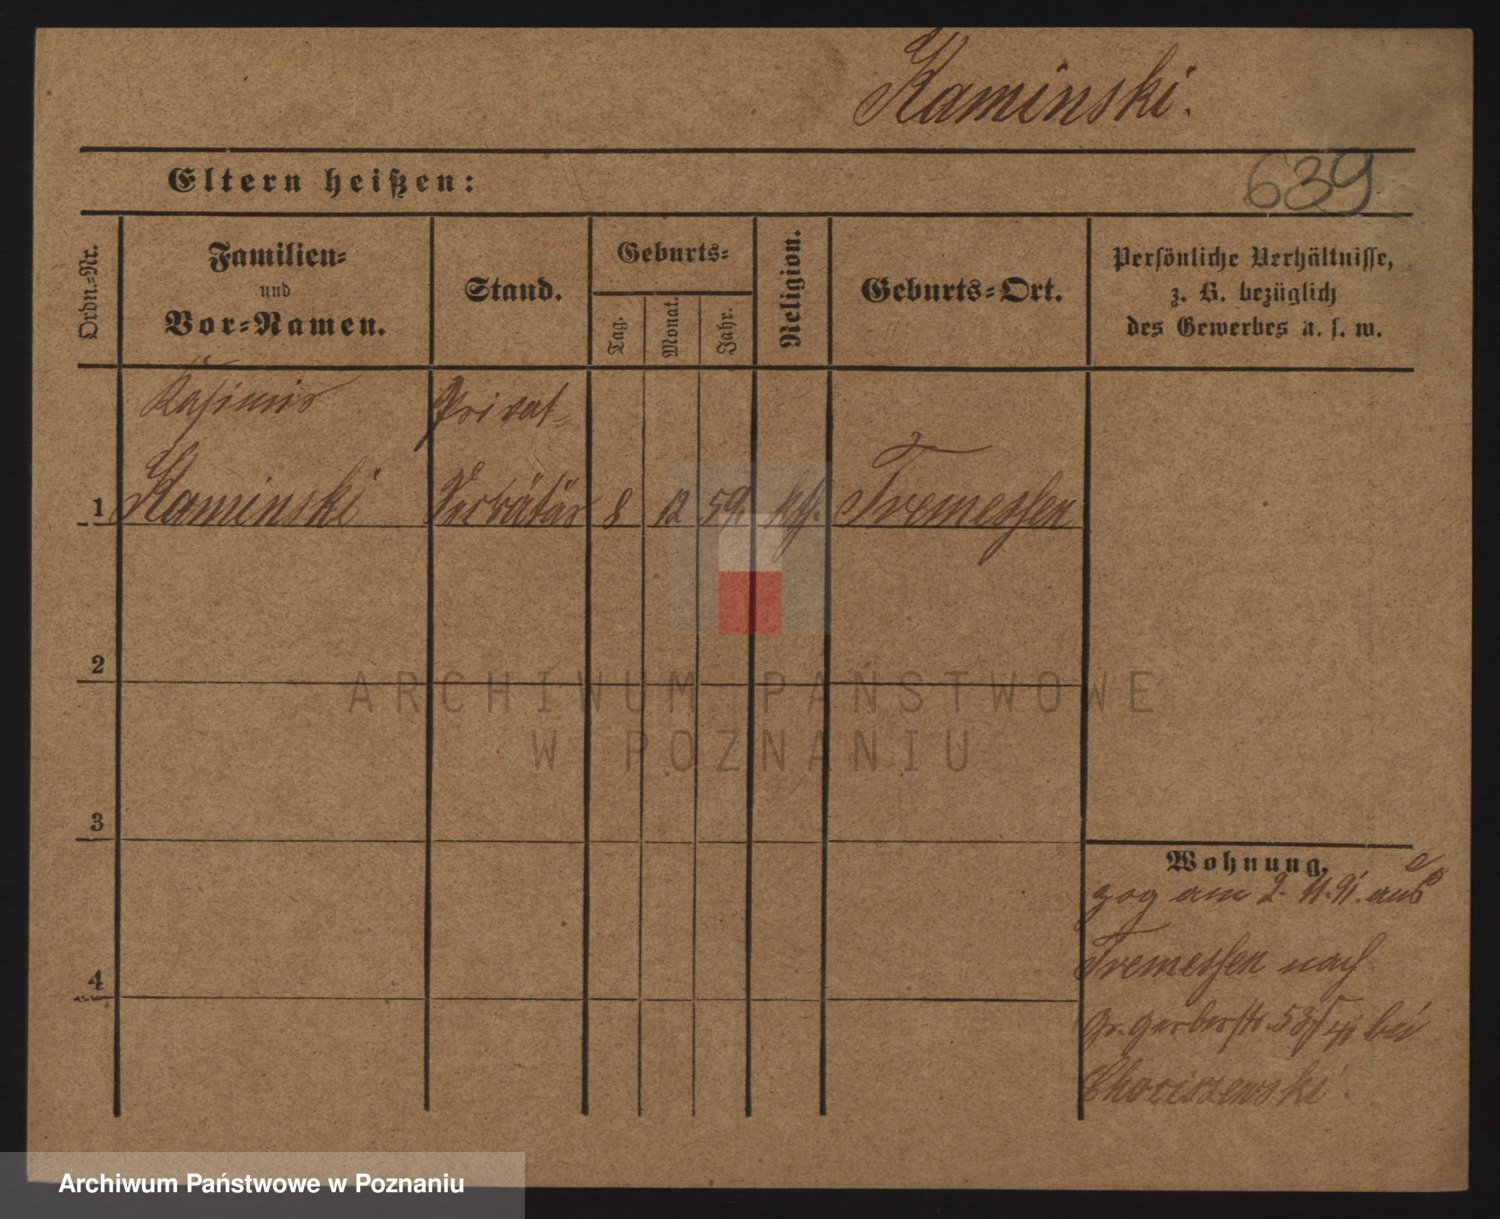 Kaminski.
Eltern heißen:
639
Ordn.=Nr.
Familien=
und
Vor=Namen.
Stand.
Geburts=
Tag.
Monat.
Jahr.
Religion.
Geburts=Ort.
Persönliche Verhältnisse,
z. B. bezüglich
des Gewerbes u. s. w.
Kasimir Privat=
1 Kaminski Secretär 8 12 59. kth. Tremessen
2
3
4
Wohnung.
zog am 2. 11. 91. aus
Tremessen nach
Gr. Gerberstr. 53 bei
ARCHIWUM PAŃSTWOWE
W POZNANIU
Archiwum Państwowe w Poznaniu